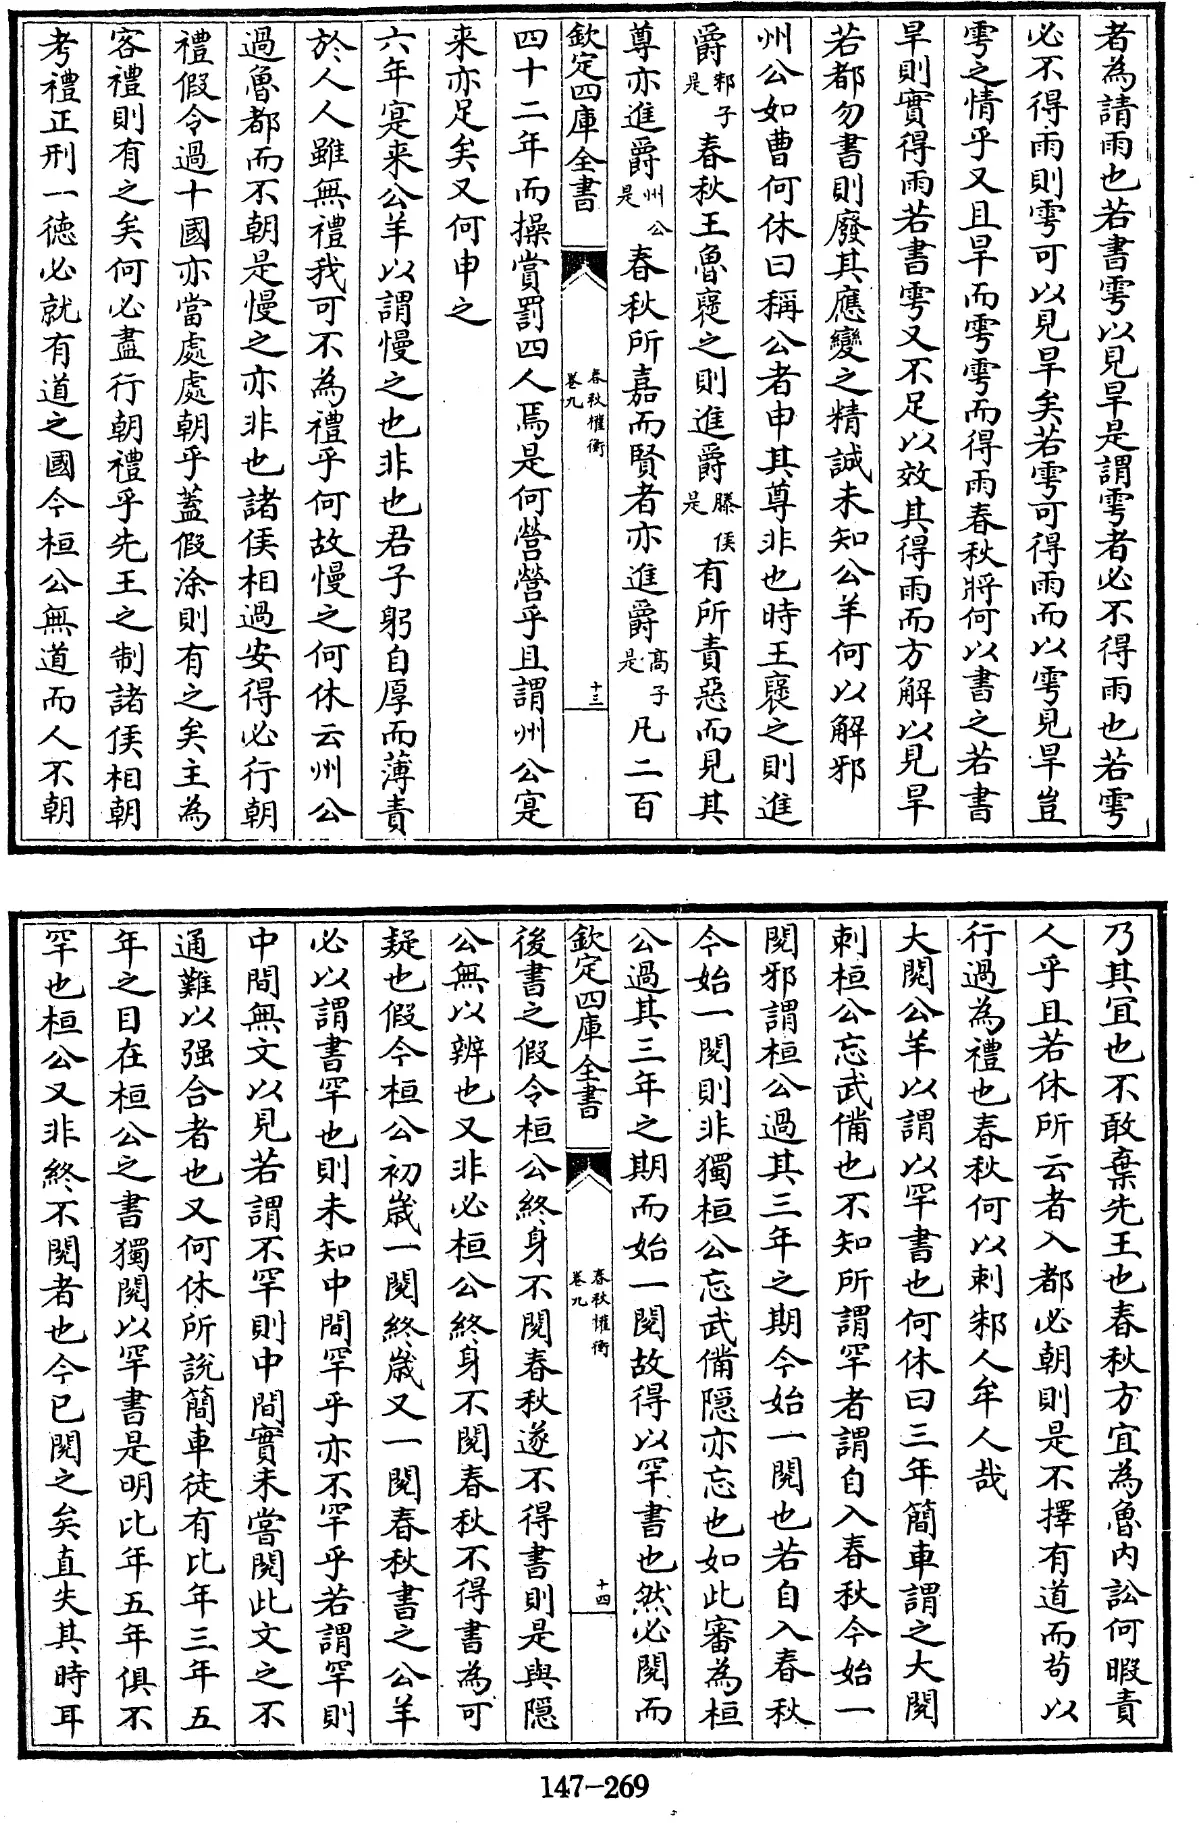 者為請雨也若書雩以見旱是謂雩者必不得雨也若雩
必不得雨則雩可以見旱矣若雩可得雨而以雩見旱豈
雩之情乎又且旱而雩雩而得雨春秋將何以書之若書
旱則實得雨若書雩又不足以效其得雨而方解以見旱
若都勿書則廢其應變之精誠未知公羊何以解邪
州公如曹何休曰稱公者申其尊非也時王褒之則進
爵邾子是春秋王魯褒之則進爵滕侯是有所責惡而見其
尊亦進爵州公是春秋所嘉而賢者亦進爵高子是凡二百
欽定四庫全書 春秋權衡 卷九 十三
四十二年而操賞罰四人焉是何營營乎且謂州公寔
来亦足矣又何申之
六年寔来公羊以謂慢之也非也君子躬自厚而薄責
於人人雖無禮我可不為禮乎何故慢之何休云州公
過魯都而不朝是慢之亦非也諸侯相過安得必行朝
禮假令過十國亦當處處朝乎蓋假涂則有之矣主為
客禮則有之矣何必盡行朝禮乎先王之制諸侯相朝
考禮正刑一德必就有道之國今桓公無道而人不朝
乃其宜也不敢棄先王也春秋方宜為魯内訟何暇責
人乎且若休所云者入都必朝則是不擇有道而苟以
行過為禮也春秋何以刺邾人牟人哉
大閱公羊以謂以罕書也何休曰三年簡車謂之大閱
刺桓公忘武備也不知所謂罕者謂自入春秋今始一
閱邪謂桓公過其三年之期今始一閱也若自入春秋
今始一閱則非獨桓公忘武備隱亦忘也如此審為桓
公過其三年之期而始一閱故得以罕書也然必閱而
欽定四庫全書 春秋權衡 卷九 十四
後書之假令桓公終身不閱春秋遂不得書則是與隱
公無以辨也又非必桓公終身不閱春秋不得書為可
疑也假令桓公初歲一閱終歲又一閱春秋書之公羊
必以謂書罕也則未知中間罕乎亦不罕乎若謂罕則
中間無文以見若謂不罕則中間實未嘗閱此文之不
通難以强合者也又何休所說簡車徒有比年三年五
年之目在桓公之書獨閱以罕書是明比年五年俱不
罕也桓公又非終不閱者也今已閱之矣直失其時耳
147-269